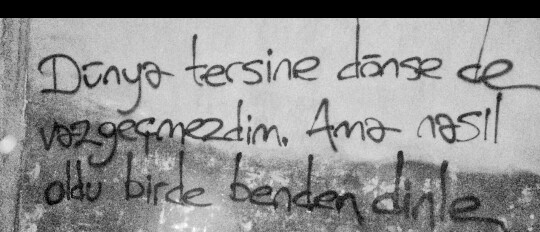 Dünya tersine dönse de
vazgeçmezdim. Ama nasıl
oldu birde benden dinle